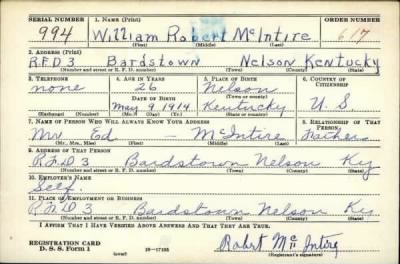 SERIAL NUMBER 1. NAME (Print) ORDER NUMBER
994 William Robert McIntire 617
(First) (Middle) (Last)
2. ADDRESS (Print)
R.F.D 3 Bardstown Nelson Kentucky
(Number and street or R. F. D. number) (Town) (County) (State)
3. TELEPHONE 4. AGE IN YEARS 5. PLACE OF BIRTH 6. COUNTRY OF CITIZENSHIP
none 26 Nelson
(Town or county)
DATE OF BIRTH
May 9 1914 Kentucky U. S.
(Exchange) (Number) (Mo.) (Day) (Yr.) (State or country)
7. NAME OF PERSON WHO WILL ALWAYS KNOW YOUR ADDRESS 8. RELATIONSHIP OF THAT PERSON
Mr Ed — McIntire Father
(Mr., Mrs., Miss) (First) (Middle) (Last)
9. ADDRESS OF THAT PERSON
R.F.D 3 Bardstown Nelson Ky
(Number and street or R. F. D. number) (Town) (County) (State)
10. EMPLOYER'S NAME
Self.
11. PLACE OF EMPLOYMENT OR BUSINESS
R.F.D 3 Bardstown Nelson Ky
(Number and street or R. F. D. number) (Town) (County) (State)
I AFFIRM THAT I HAVE VERIFIED ABOVE ANSWERS AND THAT THEY ARE TRUE.
REGISTRATION CARD
D. S. S. Form 1 (over) 16—17105
Robert Mc Intire
(Registrant's signature)